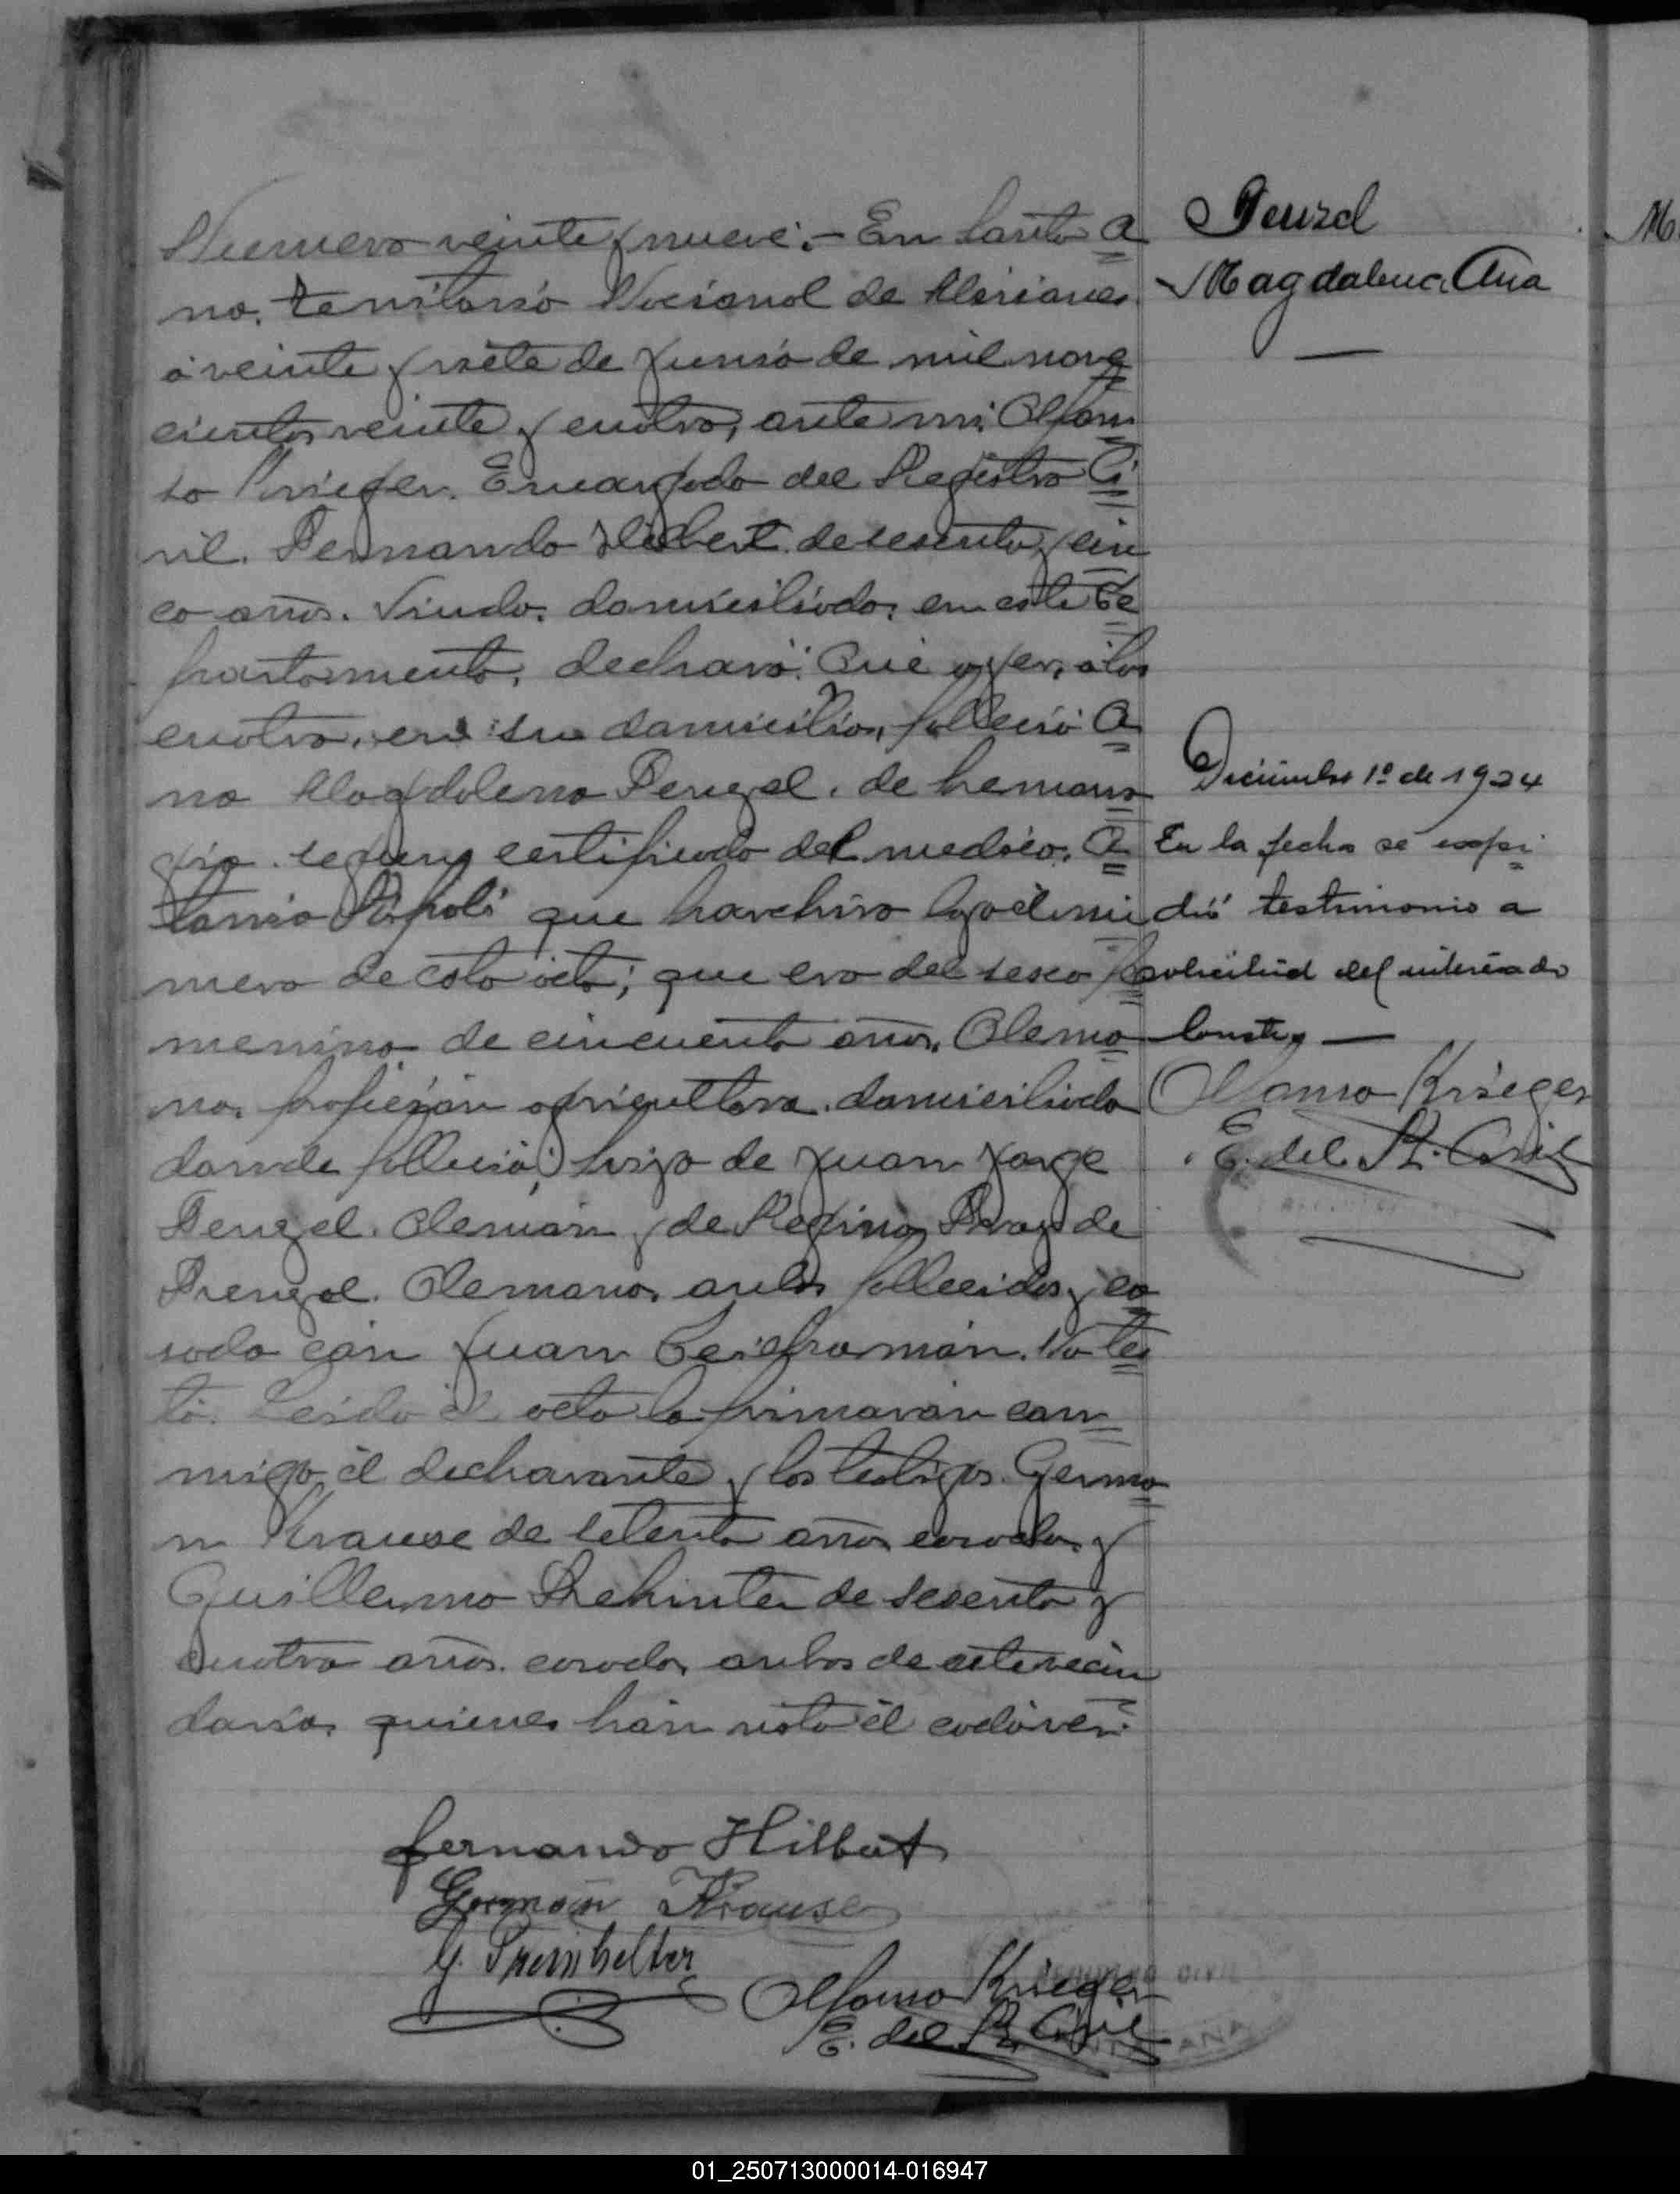 Numero veinte y nueve.- En Santa A
na, territorio Nacional de Misiones
á veinte y siete de Junio de mil nove
cientos veinte y cuatro, ante mi, Alfon
so Krieger, Encargado del Registro Ci
vil. Fernando Hilbert de sesenta y cin
co años. Viudo, domiciliado, en este De
partamento, declaró: Que ayer, á las
cuatro, en su domicilio, falleció A
na Magdalena Penzel, de hemorra
gia segun certificado del medico, A
que harchivo bajo el nú
mero de esta acta; que era del sexo fe
menino de cincuenta años, Alema
na, profesión agricultora, domiciliada
donde falleció; hija de Juan Jorge
Penzel, Aleman y de Regina de
Penzel. Alemana, anbos fallecidos, y ca
sada con Juan No tes
tó. Leida el acta la firmaron con
migo, el declarante y los testigos Germa
n Krause de setenta años casado, y
Guillermo de sesenta y
cuatro años casado, anbos de este vecin
dario, quienes han visto el cadáver.
Fernando Hilbert
Germán Krause
G.
Alfonso Krieger
E. del R. Civil
Penzel
Magdalena Ana
Diciembre 1º de 1924
En la fecha se expi
dió testimonio a
solicitud del interesado
Conste,
Alfonso Krieger
E. del R. Civil
M
01_250713000014-016947